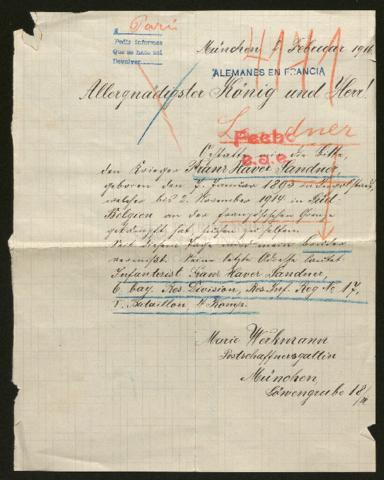 A Paris
Pedir informes
Que se hace así
Devolver
4171
München, 1. Februar 1916
ALEMANES EN FRANCIA
Allergnädigster König und Herr!
Landner
Fech
s.a.e.
Gestatte mir die Bitte,
den Krieger Franz Xaver Sandner,
geboren den 7. Januar 1893 in
welcher bis 2. November 1914 in Süd
Belgien an der französischen Grenze
gekämpft hat, suchen zu helfen.
Seit diesem Tage wird mein Bruder
vermisst. Seine letzte Adresse lautet
Infanterist Franz Xaver Sandner,
6. bay. Res. Division, Res. Inf. Reg. No 17,
1. Bataillon, 4. Komp.
Marie Weihmann
Postschaffnersgattin
München
Löwengrube 18/